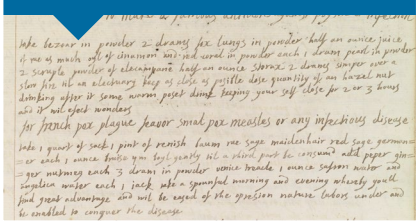 to make a
take bezoar in powder 2 drams fox lungs in powder half an ounce juice
of as much oyl of cinamon and red coral in powder each 1 dram pearl in powder
2 scruple powder of elecampane half an ounce 2 drams simper over a
slow fire til an electuary keep as close as posible dose quantity of an hazel nut
drinking after it some warm poset drink keeping your self close for 2 or 3 hours
and it wil efect wonders
for french pox plague feavor smal pox measles or any infectious disease
take 1 quart of sack 1 pint of renish baum rue sage maidenhair red sage german=
=er each 1 ounce bruise ym boyl gently til a third part be consumd add peper gin=
=ger nutmeg each 3 dram in powder venice treacle 1 ounce safron water and
angelica water each 1 jack take a spoonful morning and evening whereby youl
find great advantage and wil be eased of the opresion nature labors under and
be enabled to conquer the disease